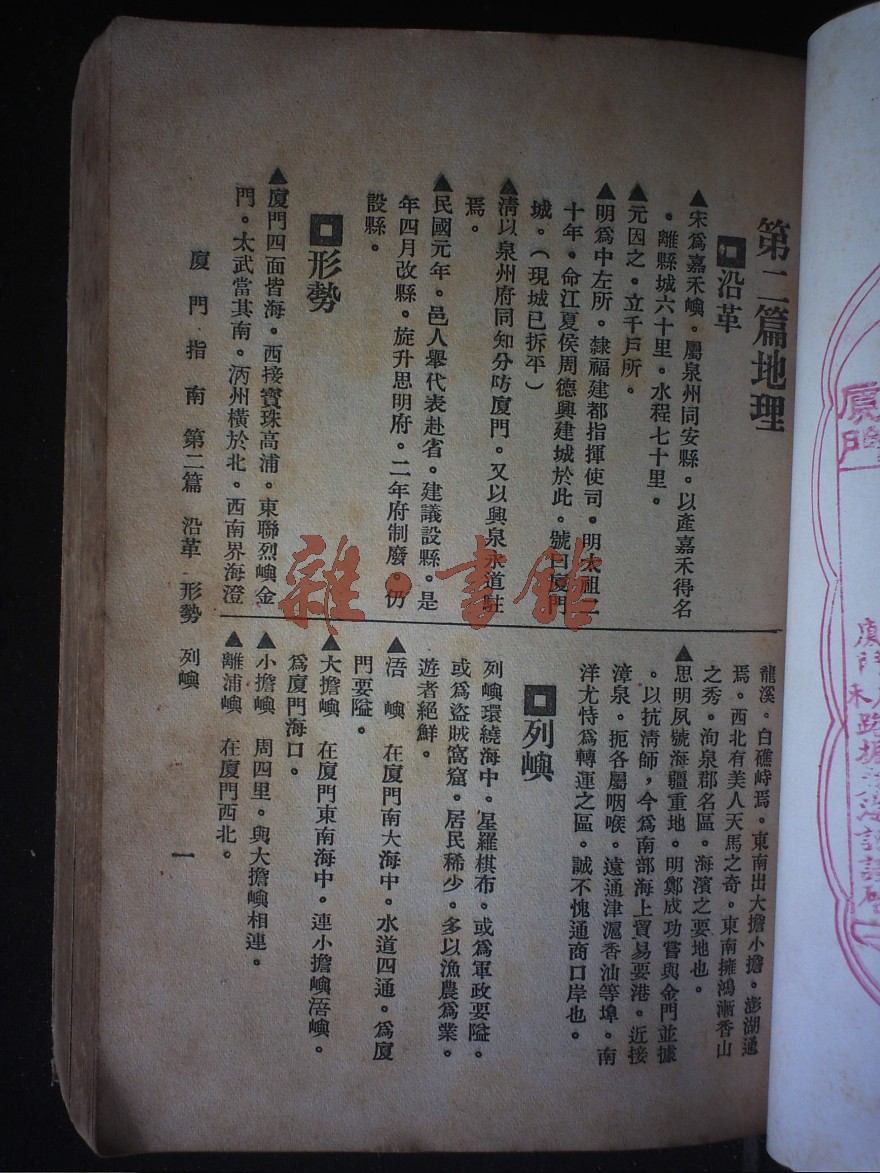 第二篇地理
沿革
▲宋爲嘉禾嶼。屬泉州同安縣。以產嘉禾得名
。離縣城六十里。水程七十里。
▲元因之。立千戶所。
▲明爲中左所。隸福建都指揮使司。明太祖二
十年。命江夏侯周德興建城於此。號曰廈門
城。(現城已拆平)
▲淸以泉州府同知分防廈門。又以興泉永道駐
焉。
▲民國元年。邑人舉代表赴省。建議設縣。是
年四月改縣。旋升思明府。二年府制廢。仍
設縣。
形勢
▲廈門四面皆海。西接寳珠高浦。東聯烈嶼金
門。太武當其南。洒州橫於北。西南界海澄
龍溪。白礁峙焉。東南出大擔小擔。澎湖通
焉。西北有美人天馬之奇。東南擁鴻漸香山
之秀。洵泉郡名區。海濱之要地也。
▲思明夙號海疆重地。明鄭成功嘗與金門並據
。以抗淸師,今爲南部海上貿易要港。近接
漳泉。扼各屬咽喉。遠通津滬香汕等埠。南
洋尤恃爲轉運之區。誠不愧通商口岸也。
列嶼
列嶼環繞海中。星羅棋布。或爲軍政要隘。
或爲盜賊窩窟。居民稀少。多以漁農爲業。
遊者絕鮮。
▲浯嶼 在廈門南大海中。水道四通。爲廈
門要隘。
▲大擔嶼 在廈門東南海中。連小擔嶼浯嶼。
爲廈門海口。
▲小擔嶼 周四里。與大擔嶼相連。
▲離浦嶼 在廈門西北。
廈門指南 第二篇 沿革 形勢 列嶼
一
雜·書館
廈門